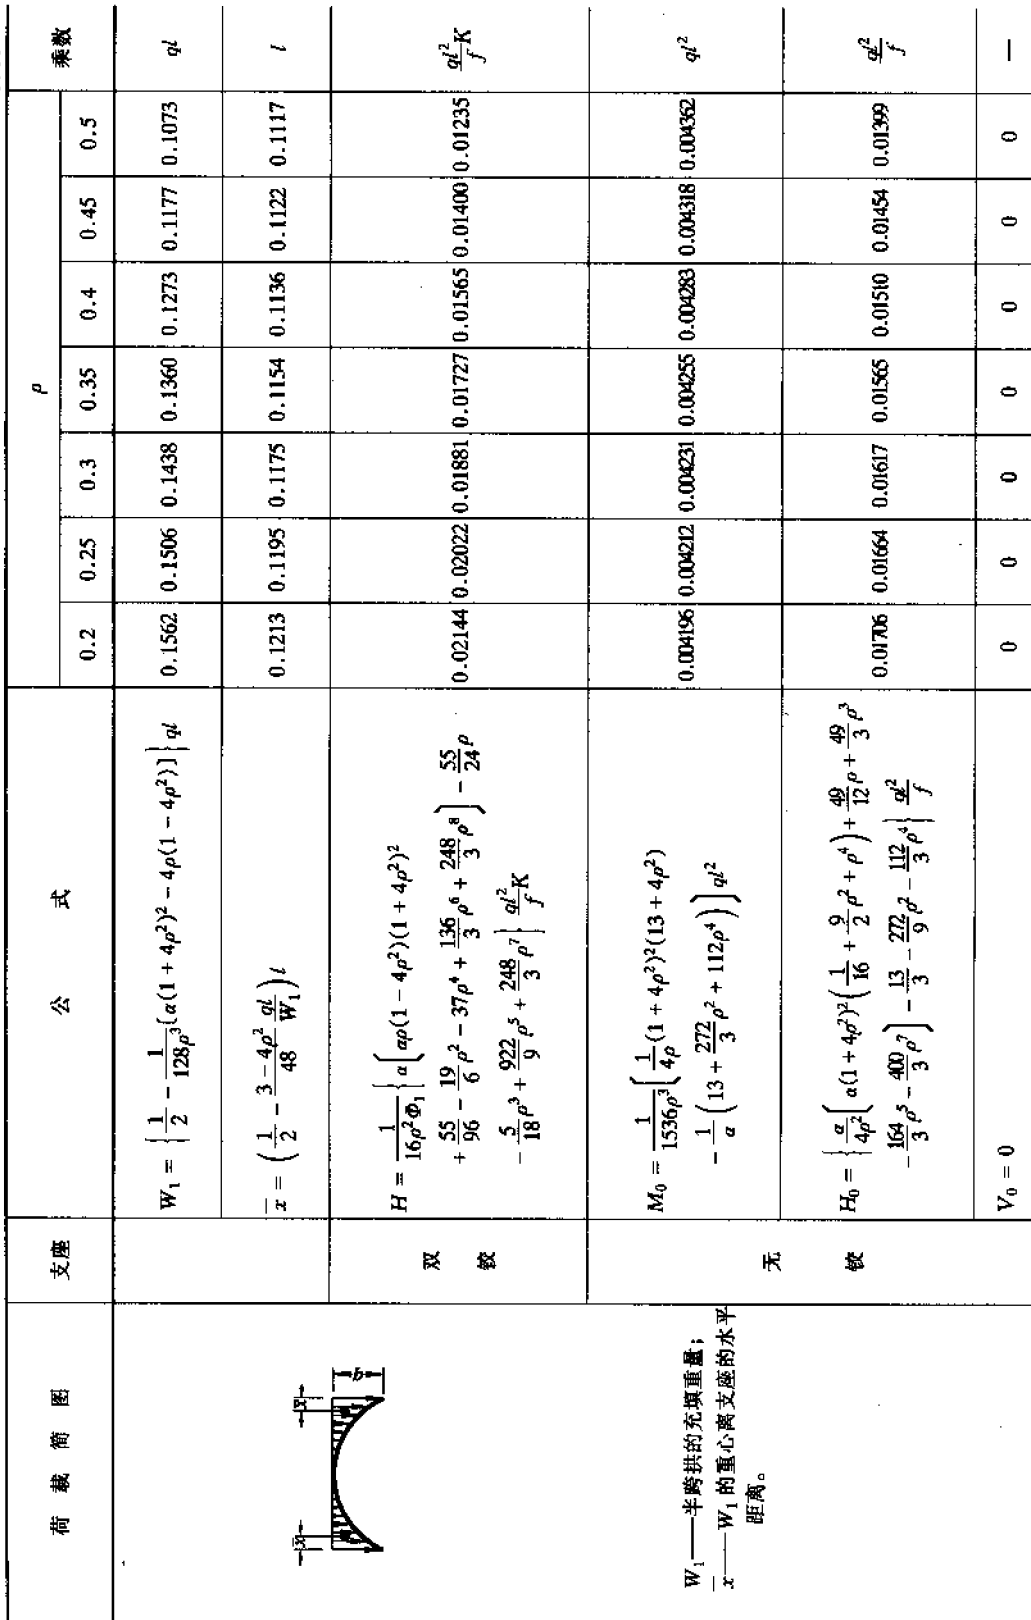 荷载简图 支座 公式 ρ 乘数
0.2 0.25 0.3 0.35 0.4 0.45 0.5
x̄ x̄ q
W₁——半跨拱的充填重量;
x̄——W₁的重心离支座的水平
距离。
W₁ = {1/2 - 1/(128ρ³)[α(1 + 4ρ²)² - 4ρ(1 - 4ρ²)]} ql 0.1562 0.1506 0.1438 0.1360 0.1273 0.1177 0.1073 ql
x̄ = (1/2 - (3 - 4ρ²)/48 ql/W₁) l 0.1213 0.1195 0.1175 0.1154 0.1136 0.1122 0.1117 l
双铰
H = 1/(16ρ²Φ₁) {α[αρ(1 - 4ρ²)(1 + 4ρ²)²
+ 55/96 - 19/6 ρ² - 37ρ⁴ + 136/3 ρ⁶ + 248/3 ρ⁸] - 55/24 ρ
- 5/18 ρ³ + 922/9 ρ⁵ + 248/3 ρ⁷} ql²/f K
0.02144 0.02022 0.01881 0.01727 0.01565 0.01400 0.01235 ql²/f K
无铰
M₀ = 1/(1536ρ³) [1/(4ρ) (1 + 4ρ²)²(13 + 4ρ²)
- 1/α (13 + 272/3 ρ² + 112ρ⁴)] ql²
0.004196 0.004212 0.004231 0.004255 0.004283 0.004318 0.004362 ql²
H₀ = {α/(4ρ²) [α(1 + 4ρ²)² (1/16 + 9/2 ρ² + ρ⁴) + 49/12 ρ + 49/3 ρ³
- 164/3 ρ⁵ - 400/3 ρ⁷] - 13/3 - 272/9 ρ² - 112/3 ρ⁴} ql²/f
0.01706 0.01664 0.01617 0.01565 0.01510 0.01454 0.01399 ql²/f
V₀ = 0 0 0 0 0 0 0 0 —